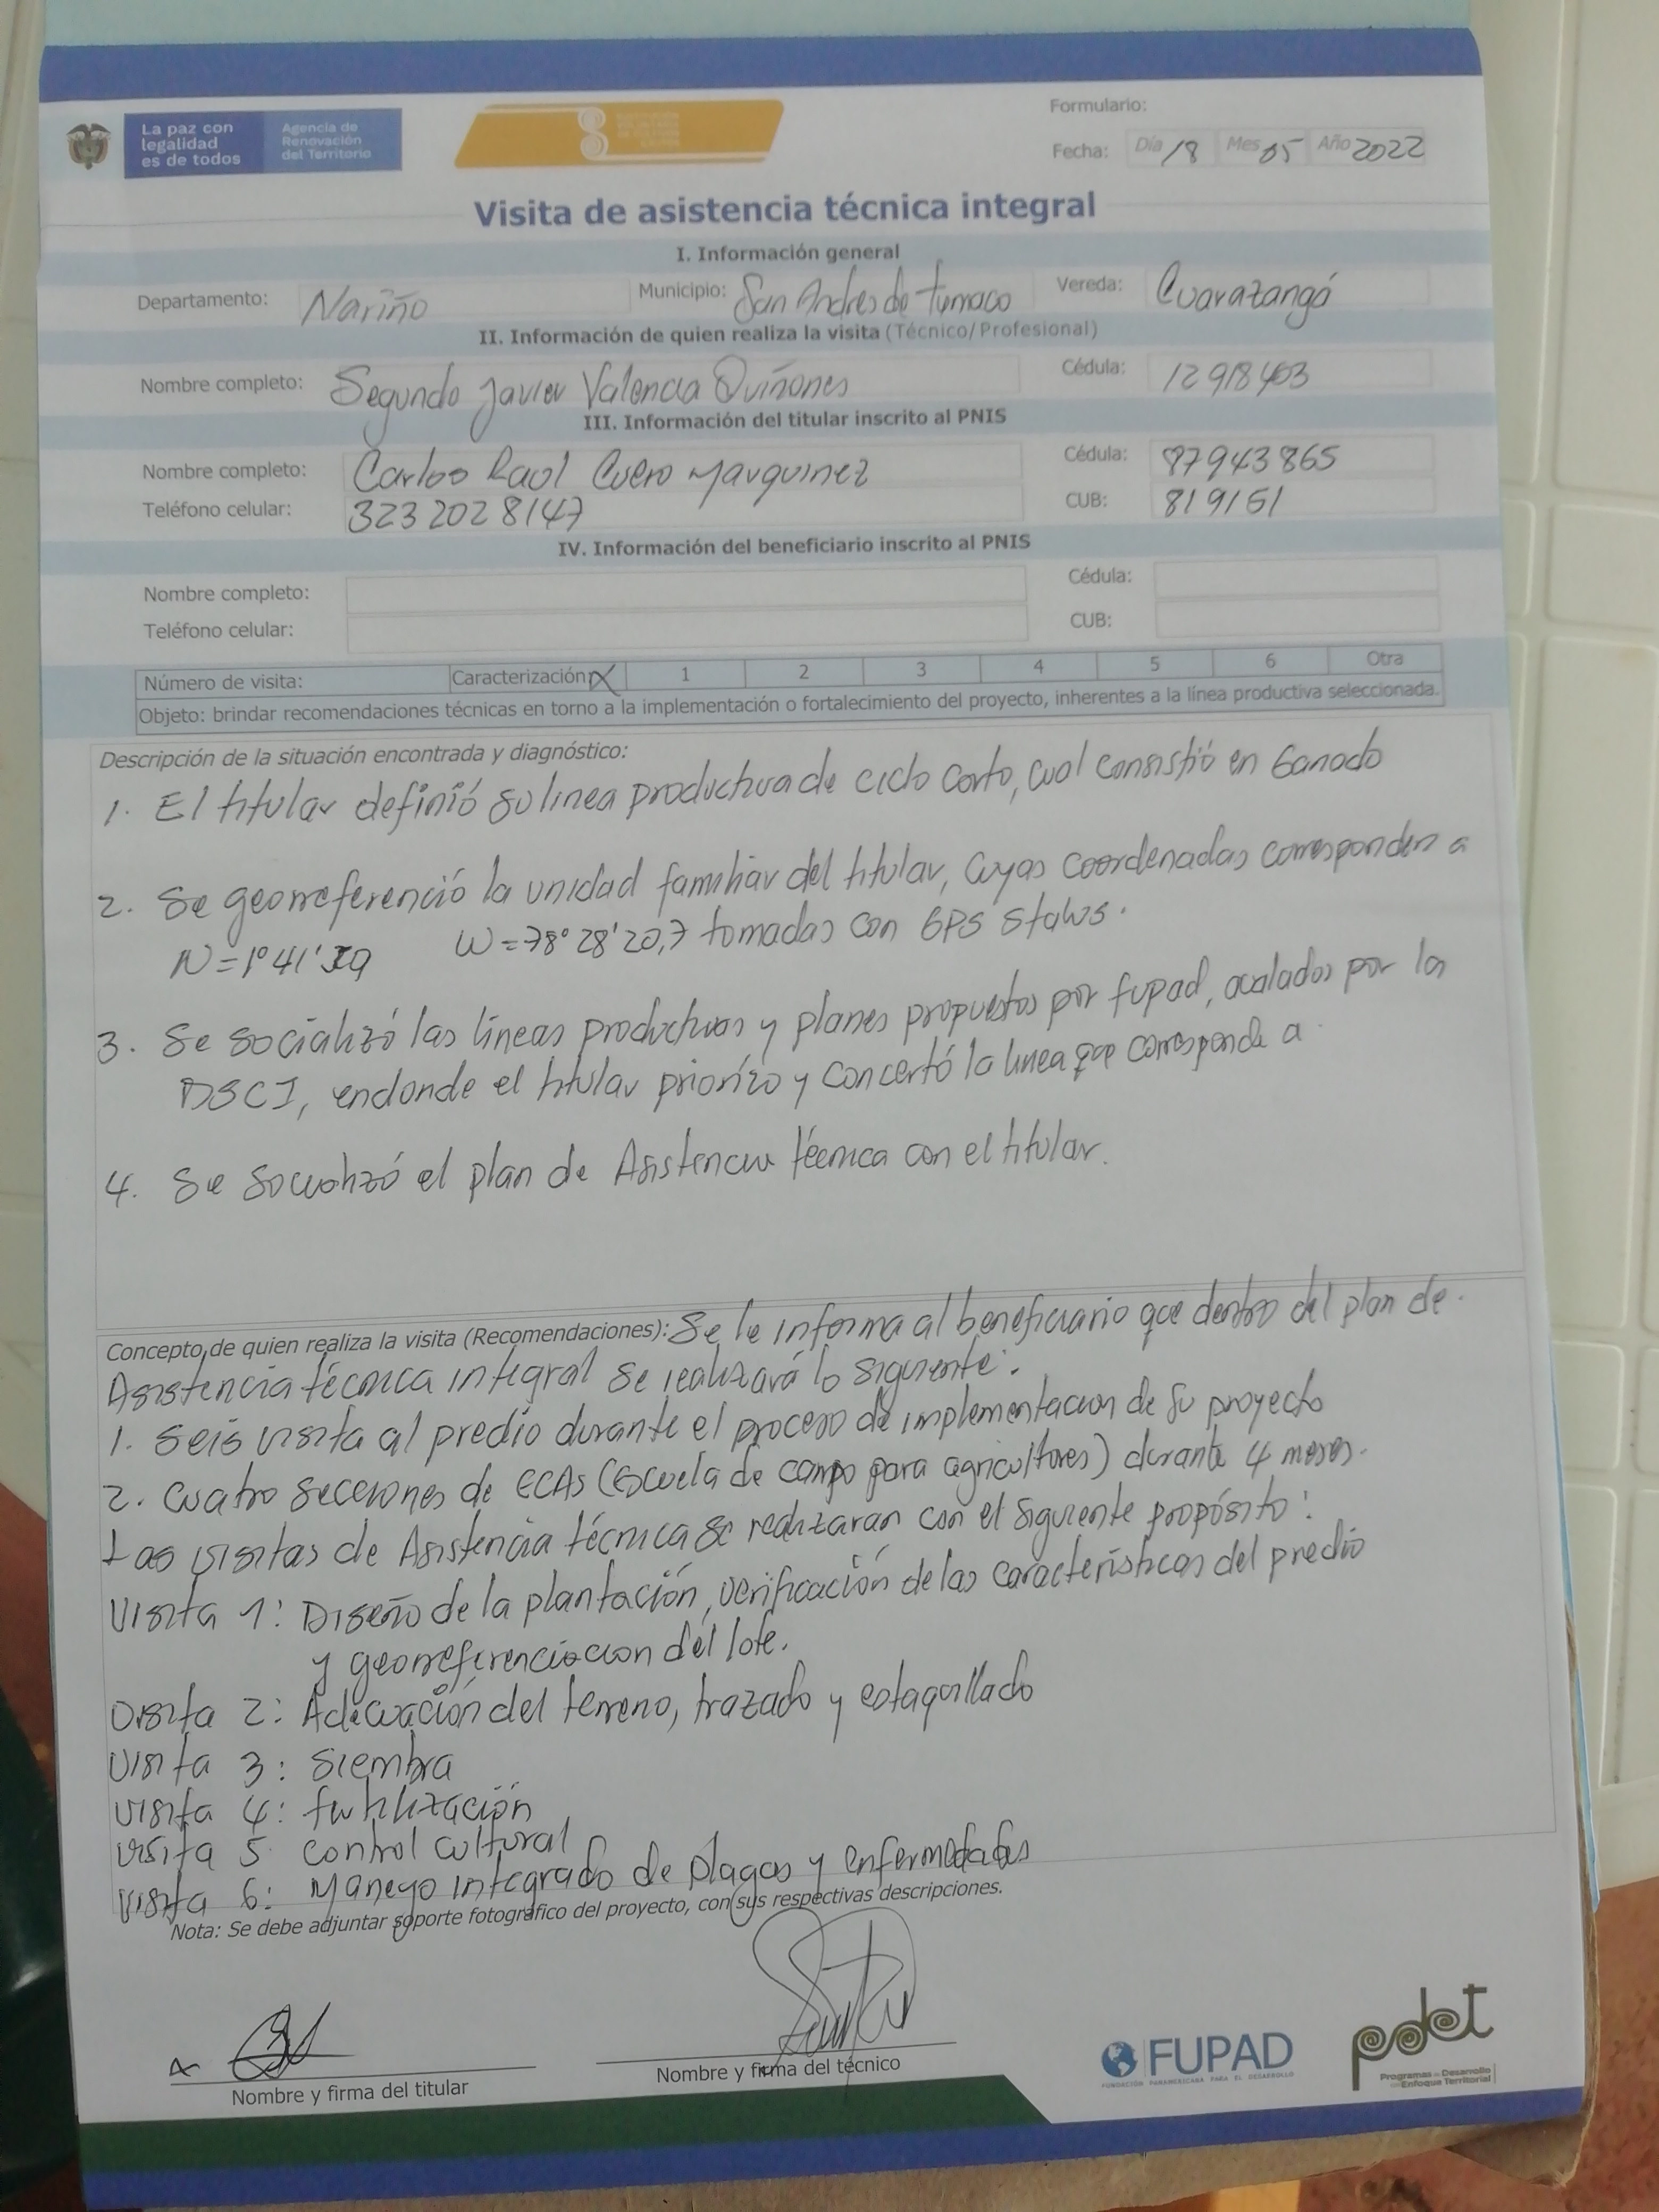 Formulario:
La paz con
legalidad
es de todos
Agencia de
Renovación
del Territorio
Fecha: Día 18 Mes 05 Año 2022
Visita de asistencia técnica integral
I. Información general
Departamento: Nariño Municipio: San Andres de Tumaco Vereda: Cuarazangá
II. Información de quien realiza la visita (Técnico/Profesional)
Nombre completo: Segundo Javier Valencia Quiñones Cédula: 12918403
III. Información del titular inscrito al PNIS
Nombre completo: Carlos Raul Cuero Marquinez Cédula: 87943865
Teléfono celular: 3232028147 CUB: 819151
IV. Información del beneficiario inscrito al PNIS
Nombre completo: Cédula:
Teléfono celular: CUB:
Número de visita: Caracterización X 1 2 3 4 5 6 Otra
Objeto: brindar recomendaciones técnicas en torno a la implementación o fortalecimiento del proyecto, inherentes a la línea productiva seleccionada.
Descripción de la situación encontrada y diagnóstico:
1. El titular definió su linea productiva de ciclo corto, cual consistió en Ganado
2. Se georreferenció la unidad familiar del titular, cuyas coordenadas corresponden a
N=1°41' W=78°28'20,7 tomadas con GPS Status.
3. Se socializó las líneas productivas y planes propuestos por fupad, avalados por la
DSCI, endonde el titular priorizo y concertó la linea que corresponde a
4. Se socializó el plan de Asistencia técnica con el titular.
Concepto de quien realiza la visita (Recomendaciones): Se le informa al beneficiario que dentro del plan de.
Asistencia técnica integral se realizará lo siguiente:
1. Seis visita al predio durante el proceso de implementacion de su proyecto
2. Cuatro secciones de ECAs (Escuela de campo para agricultores) durante 4 meses.
Las visitas de Asistencia técnica se realizaran con el siguiente propósito:
Visita 1: Diseño de la plantación, verificación de las características del predio
y georreferenciacion del lote.
Visita 2: Adecuación del terreno, trazado y estaquillado
Visita 3: Siembra
Visita 4: fertilización
Visita 5. control cultural
Visita 6: Maneyo integrado de plagas y enfermedades
Nota: Se debe adjuntar soporte fotográfico del proyecto, con sus respectivas descripciones.
Nombre y firma del titular
Nombre y firma del técnico
FUPAD
FUNDACIÓN PANAMERICANA PARA EL DESARROLLO
pdet
Programas de Desarrollo
con Enfoque Territorial